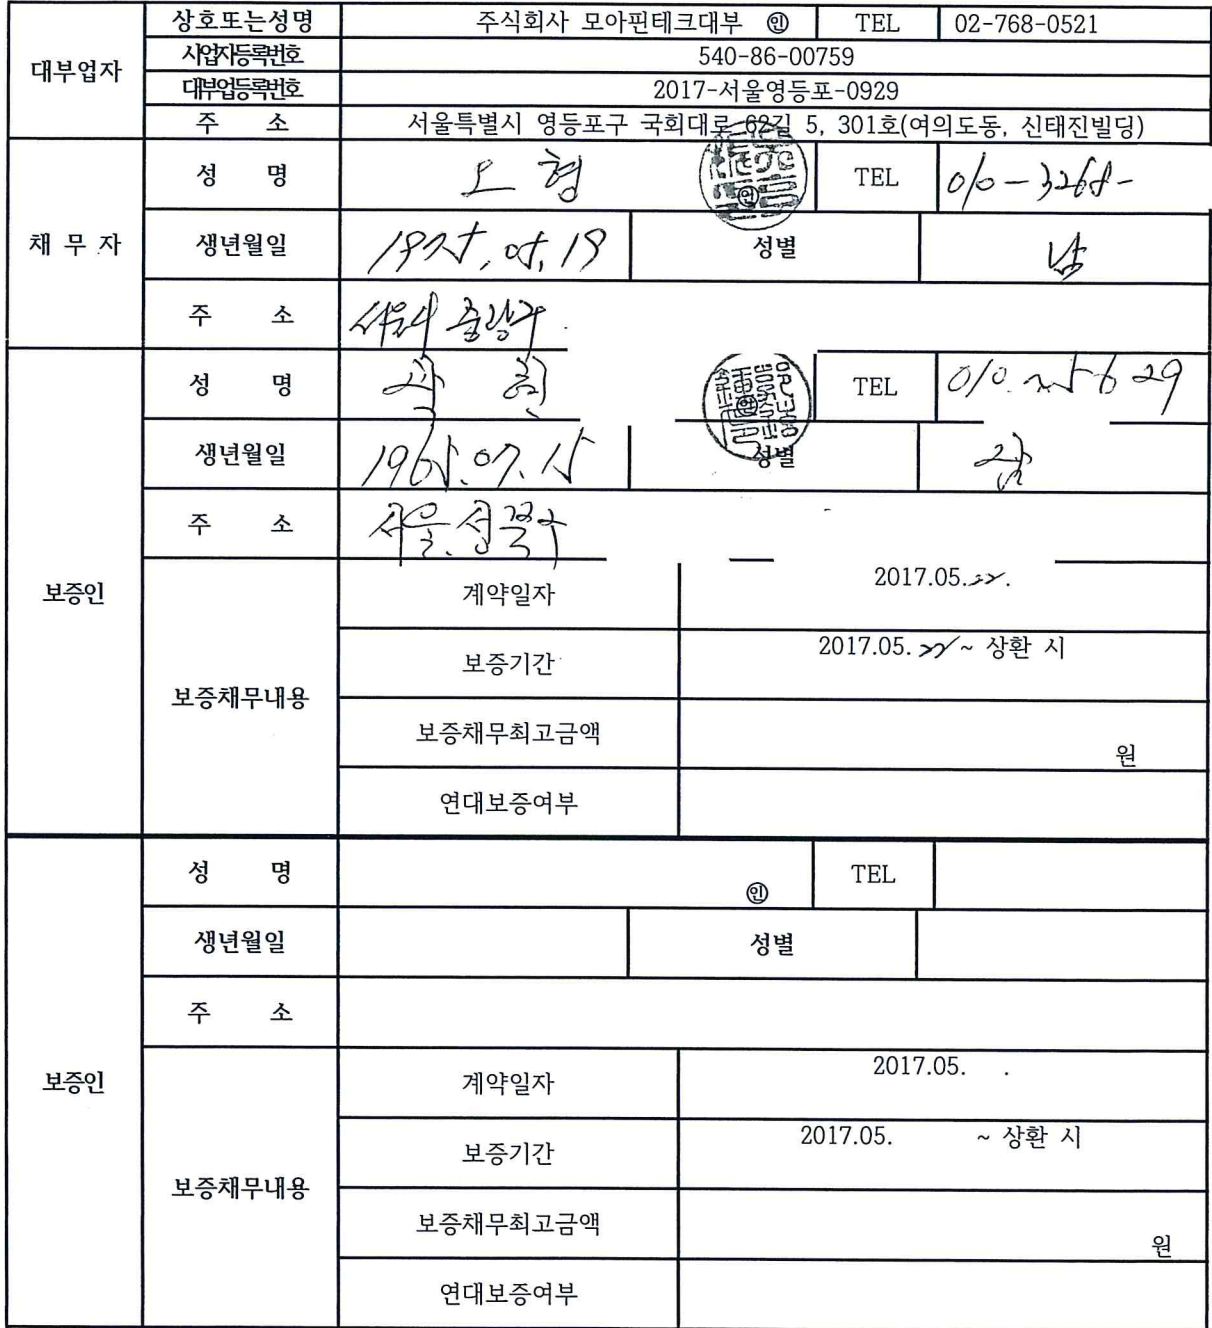 대부업자
상호또는성명 주식회사 모아핀테크대부 ㊞ TEL 02-768-0521
사업자등록번호 540-86-00759
대부업등록번호 2017-서울영등포-0929
주 소 서울특별시 영등포구 국회대로 62길 5, 301호(여의도동, 신태진빌딩)
채 무 자
성 명 오 형 ㊞ TEL 010-3268-
생년월일 1975.05.19 성별 남
주 소 서울시 중랑구
보증인
성 명 ㊞ TEL 010.
생년월일 1965.07.15 성별 남
주 소 서울.성북구
보증채무내용
계약일자 2017.05.22.
보증기간 2017.05.22~ 상환 시
보증채무최고금액 원
연대보증여부
보증인
성 명 ㊞ TEL
생년월일 성별
주 소
보증채무내용
계약일자 2017.05. .
보증기간 2017.05. ~ 상환 시
보증채무최고금액 원
연대보증여부